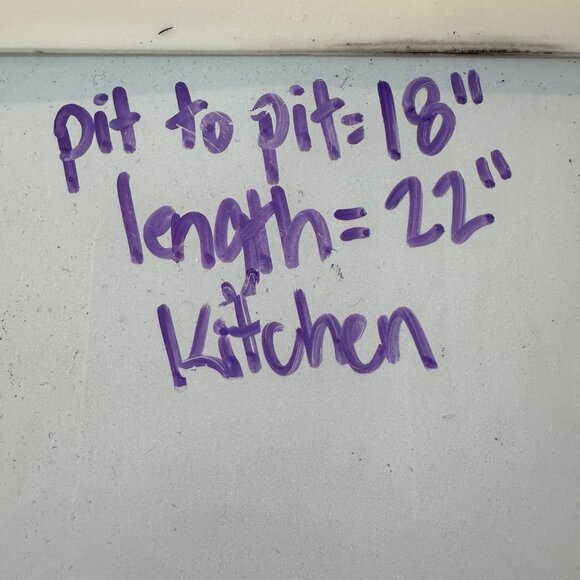 pit to pit=18"
length=22"
Kitchen